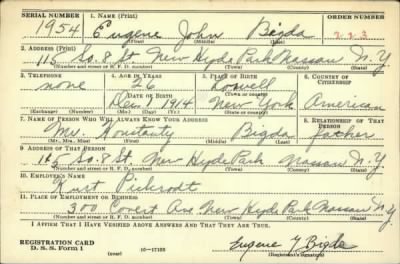 SERIAL NUMBER 1. NAME (Print) ORDER NUMBER
1954 Eugene John Bigda 223
(First) (Middle) (Last)
2. ADDRESS (Print)
115 So. 8 St. New Hyde Park Nassau N.Y.
(Number and street or R. F. D. number) (Town) (County) (State)
3. TELEPHONE 4. AGE IN YEARS 5. PLACE OF BIRTH 6. COUNTRY OF CITIZENSHIP
none 26 Roswell
DATE OF BIRTH (Town or county)
Dec. 1914 New York American
(Exchange) (Number) (Mo.) (Day) (Yr.) (State or country)
7. NAME OF PERSON WHO WILL ALWAYS KNOW YOUR ADDRESS 8. RELATIONSHIP OF THAT PERSON
Mr. Konstanty Bigda father
(Mr., Mrs., Miss) (First) (Middle) (Last)
9. ADDRESS OF THAT PERSON
115 So. 8 St. New Hyde Park Nassau N.Y.
(Number and street or R. F. D. number) (Town) (County) (State)
10. EMPLOYER'S NAME
Kurt
11. PLACE OF EMPLOYMENT OR BUSINESS
300 Covert Ave New Hyde Park Nassau N.Y.
(Number and street or R. F. D. number) (Town) (County) (State)
I AFFIRM THAT I HAVE VERIFIED ABOVE ANSWERS AND THAT THEY ARE TRUE.
REGISTRATION CARD
D. S. S. Form 1 Eugene J Bigda
(over) 16—17105 (Registrant's signature)